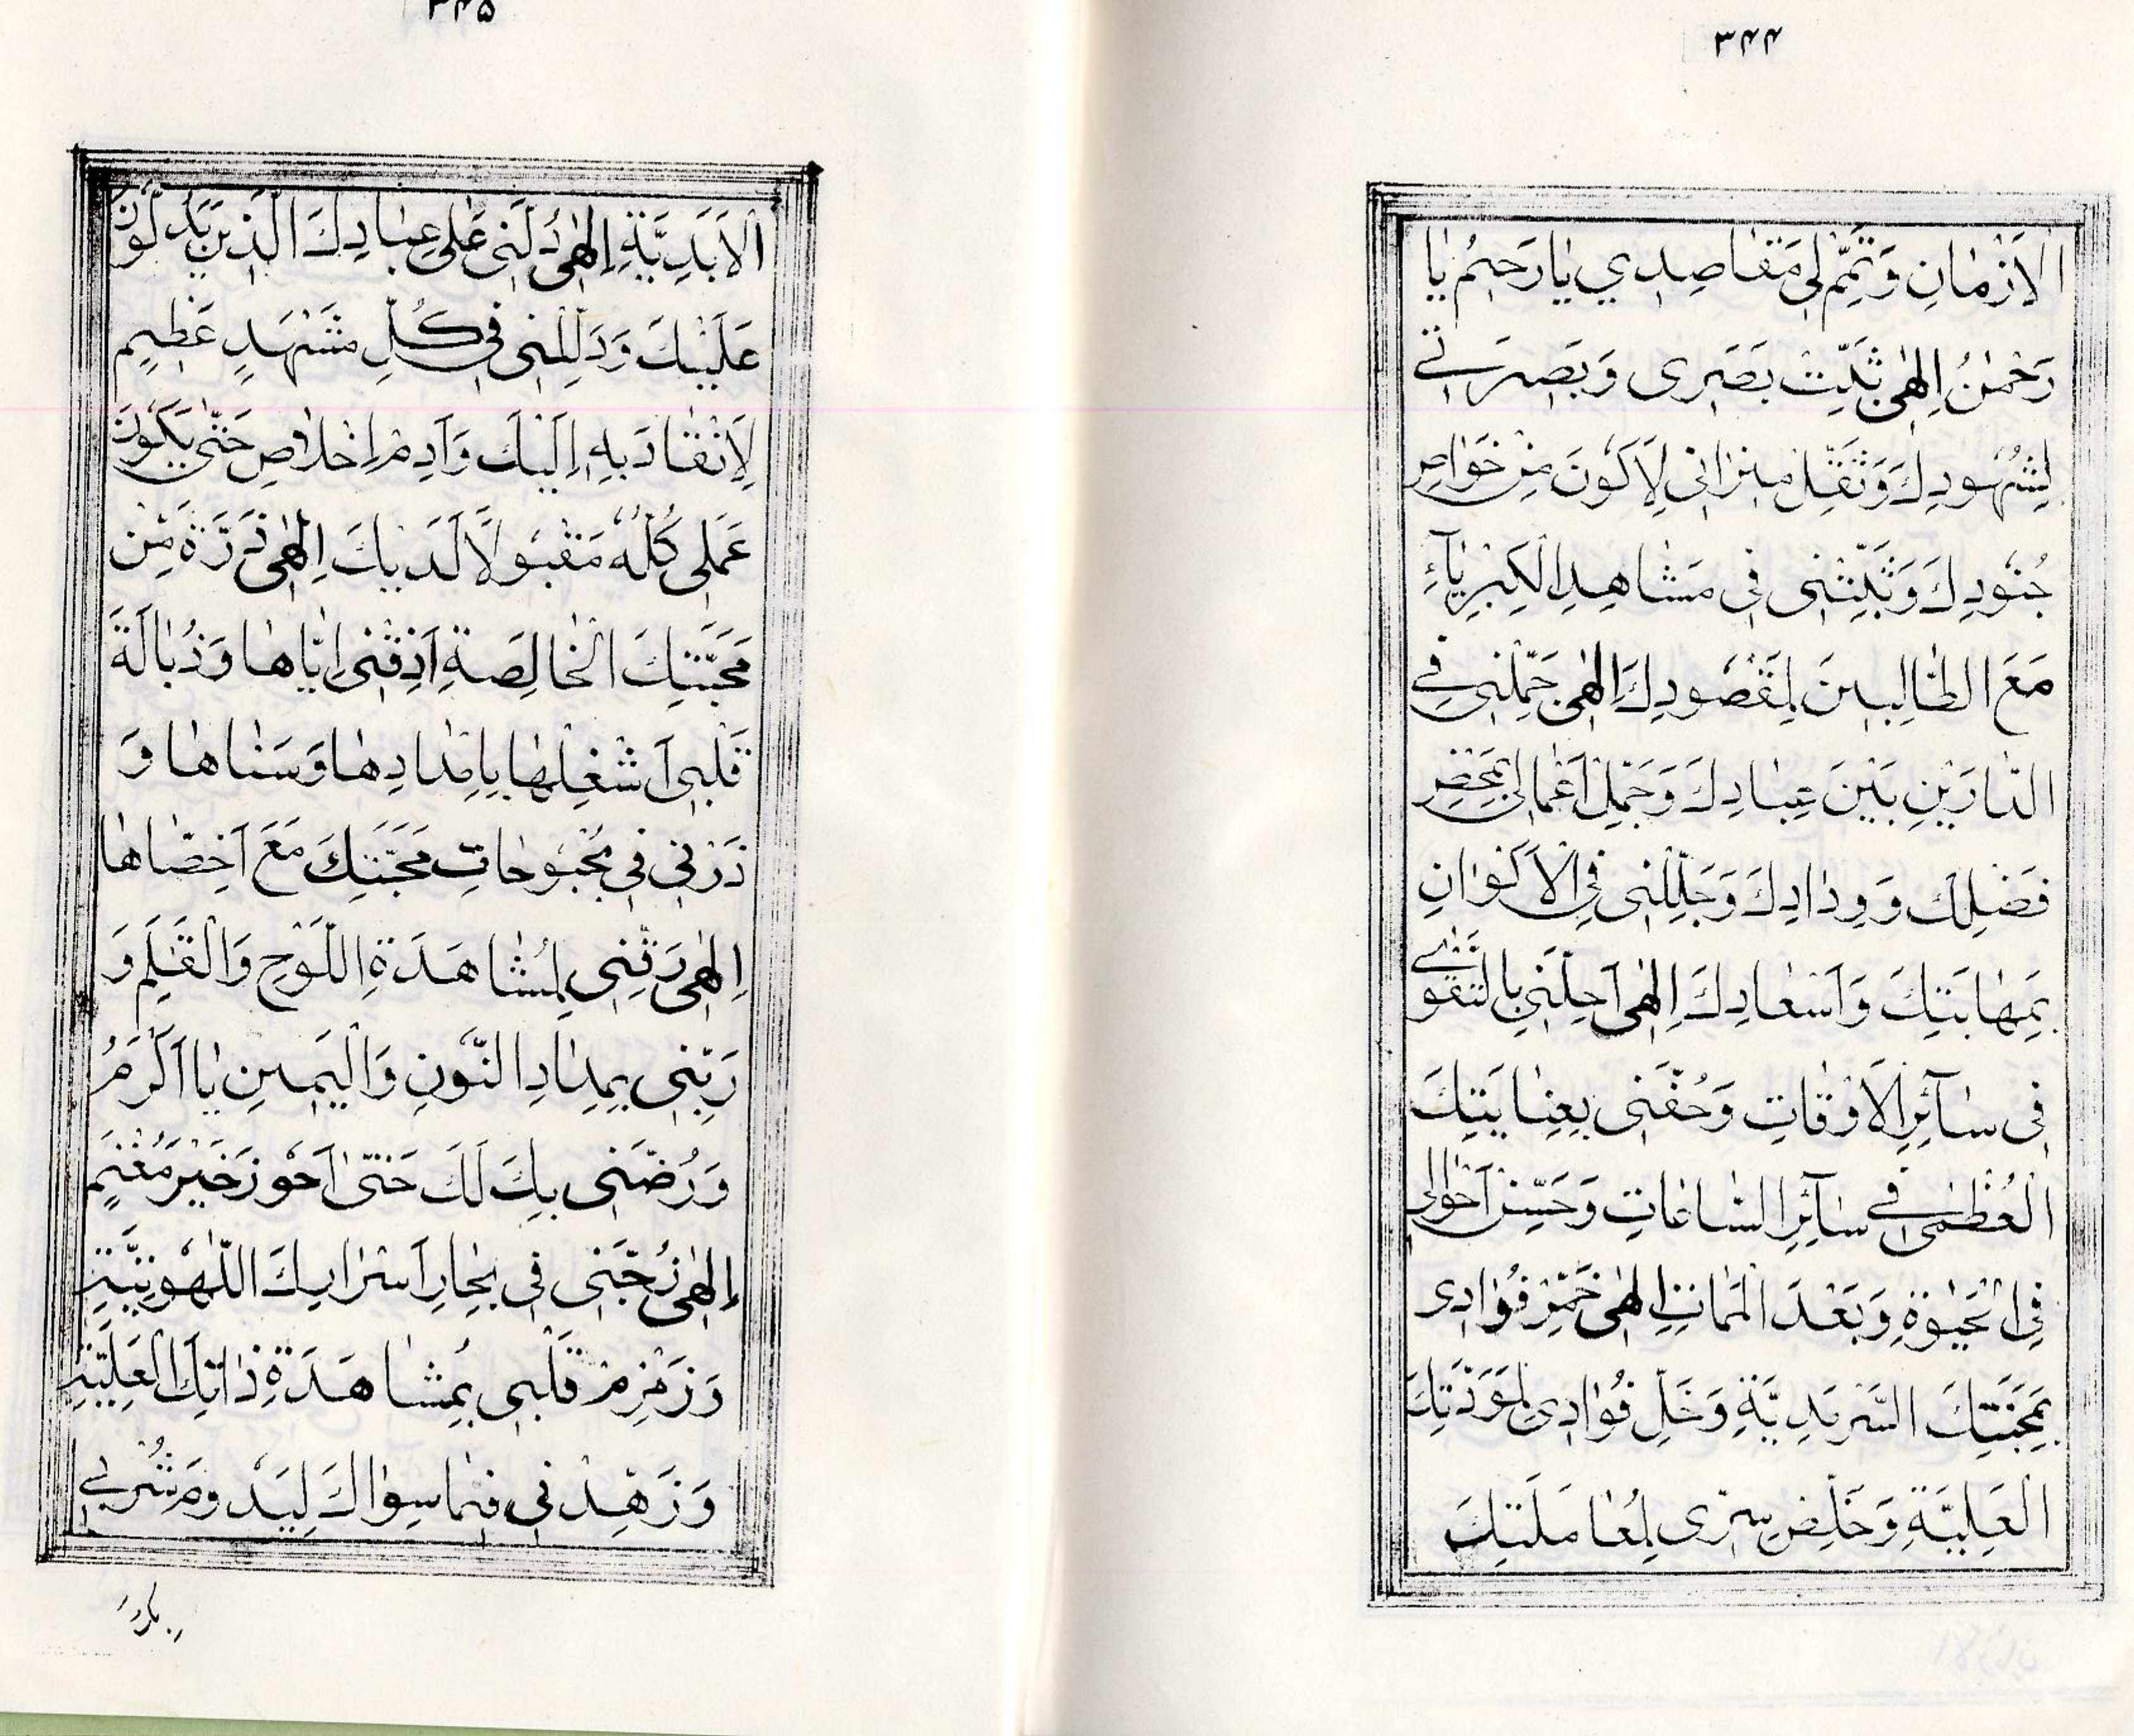 ۳۴۴
الْاَزْمٰانِ وَتَمِّمْ لِي مَقٰاصِدِي يٰا رَحِيمُ يٰا
رَحْمٰنُ اِلٰهِى ثَبِّتْ بَصَرِى وَبَصِيرَتِى
لِشُهُودِكَ وَثَقِّلْ مِيزٰانِى لِاَكُونَ مِنْ خَوٰاصِ
جُنُودِكَ وَثَبِّتْنِى فِى مَشٰاهِدِ الْكِبْرِيٰآءِ
مَعَ الطّٰالِبِينَ لِمَقْصُودِكَ اِلٰهِى جَمِّلْنِى فِى
الدّٰارَيْنِ بَيْنَ عِبٰادِكَ وَجَمِّلْ اَعْمٰالِى بِمَحْضِ
فَضْلِكَ وَوِدٰادِكَ وَجَلِّلْنِى فِى الْاَكْوٰانِ
بِمَهٰابَتِكَ وَاَسْعٰادِكَ اِلٰهِى اَحِلَّنِى بِالتَّقْوٰى
فِى سٰآئِرِ الْاَوْقٰاتِ وَحُفَّنِى بِعِنٰايَتِكَ
الْعُظْمٰى فِى سٰآئِرِ السّٰاعٰاتِ وَحَسِّنْ اَحْوٰالِى
فِى الْحَيٰوةِ وَبَعْدَ الْمَمٰاتِ اِلٰهِى خَمِّرْ فُوٰادِى
بِمَحَبَّتِكَ السَّرْمَدِيَّةِ وَخَلِّ فُوٰادِى لِمَوَدَّتِكَ
الْعَلِيَّةِ وَخَلِّصْ سِرِّى لِمُعٰامَلَتِكَ
۳۴۵
الْاَبَدِيَّةِ اِلٰهِى دُلَّنِى عَلٰى عِبٰادِكَ الَّذِينَ يَدُلُّونَ
عَلَيْكَ وَدَلِّلْنِى فِى كُلِّ مَشْهَدٍ عَظِيمٍ
لِاَنْقٰادَ بِهِ اِلَيْكَ وَاَدِمْ اِخْلٰاصِى حَتّٰى يَكُونَ
عَمَلِى كُلُّهُ مَقْبُولًا لَدَيْكَ اِلٰهِى ذَرَّةً مِنْ
مَحَبَّتِكَ الْخٰالِصَةِ اَذِقْنِى اِيّٰاهٰا وَذُبٰالَةَ
قَلْبِى اَشْغِلْهٰا بِاِمْدٰادِهٰا وَسَنٰاهٰا وَ
ذَرْنِى فِى بُحْبُوحٰاتِ مَحَبَّتِكَ مَعَ اَخِصّٰاهٰا
اِلٰهِى رَقِّنِى لِمُشٰاهَدَةِ اللَّوْحِ وَالْقَلَمِ وَ
رَبِّنِى بِمِدٰادِ النُّونِ وَالْيَمِينِ يٰا اَكْرَمُ
وَرُضَّنِى بِكَ لَكَ حَتّٰى اَحُوزَ خَيْرَ مَغْنَمٍ
اِلٰهِى زُجَّنِى فِى بِحٰارِ اَسْرٰارِكَ اللّٰهُوتِيَّةِ
وَزَمْزِمْ قَلْبِى بِمُشٰاهَدَةِ ذٰاتِكَ الْعَلِيَّةِ
وَزَهِّدْنِى فِيمٰا سِوٰاكَ لِيَبْدُو مَشْرَبِى